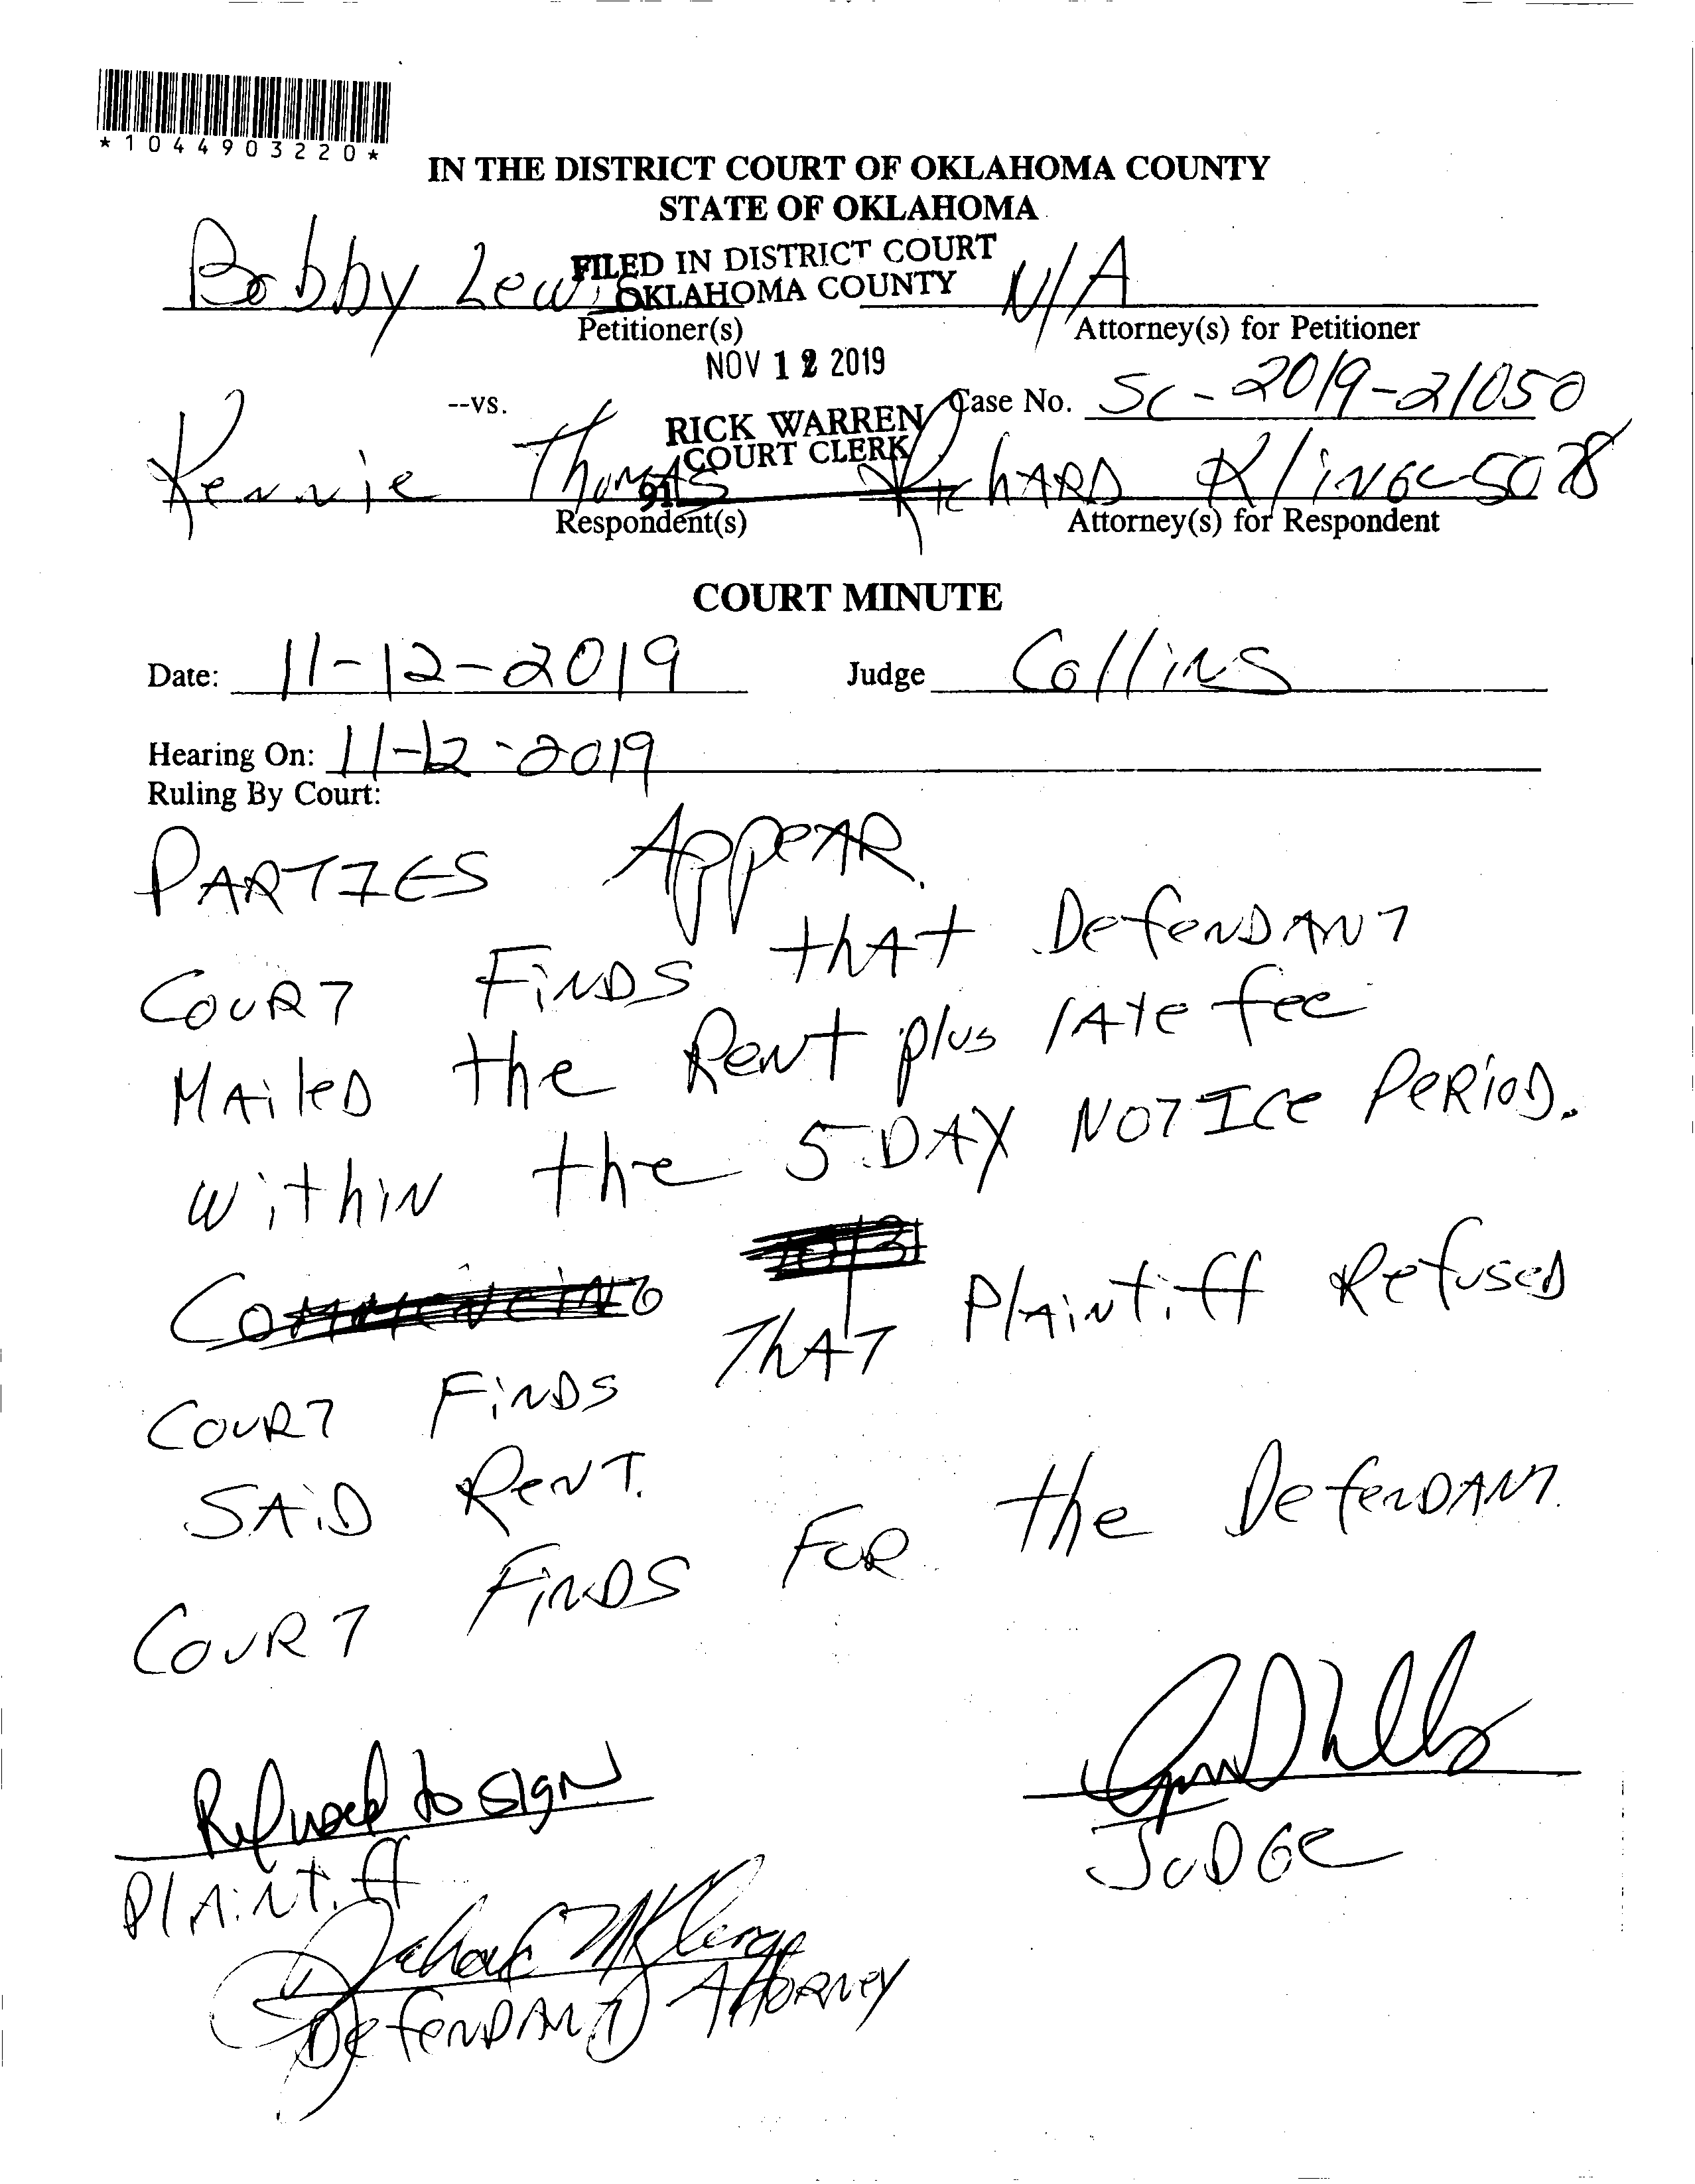 *1044903220*
IN THE DISTRICT COURT OF OKLAHOMA COUNTY
STATE OF OKLAHOMA
FILED IN DISTRICT COURT
OKLAHOMA COUNTY
Bobby Lewis N/A
Petitioner(s) Attorney(s) for Petitioner
NOV 12 2019
--vs. Case No. SC-2019-21050
RICK WARREN
COURT CLERK
91
Kennie Thomas Richard Klinge 5028
Respondent(s) Attorney(s) for Respondent
COURT MINUTE
Date: 11-12-2019 Judge Collins
Hearing On: 11-12-2019
Ruling By Court:
PARTIES AppeAR.
COURT FiNDS thAt DefeNDANT
MAileD the ReNt plus lAte fee
withiN the 5 DAY NOTICe PeRioD.
COURT FiNDS THAT PlAiNtiff RefuseD
SAiD ReNT.
COURT FiNDS FOR the DefeNDANT.
Refused to sign
PlAiNtiff
JUDGe
DefeNDANT AttoRNey